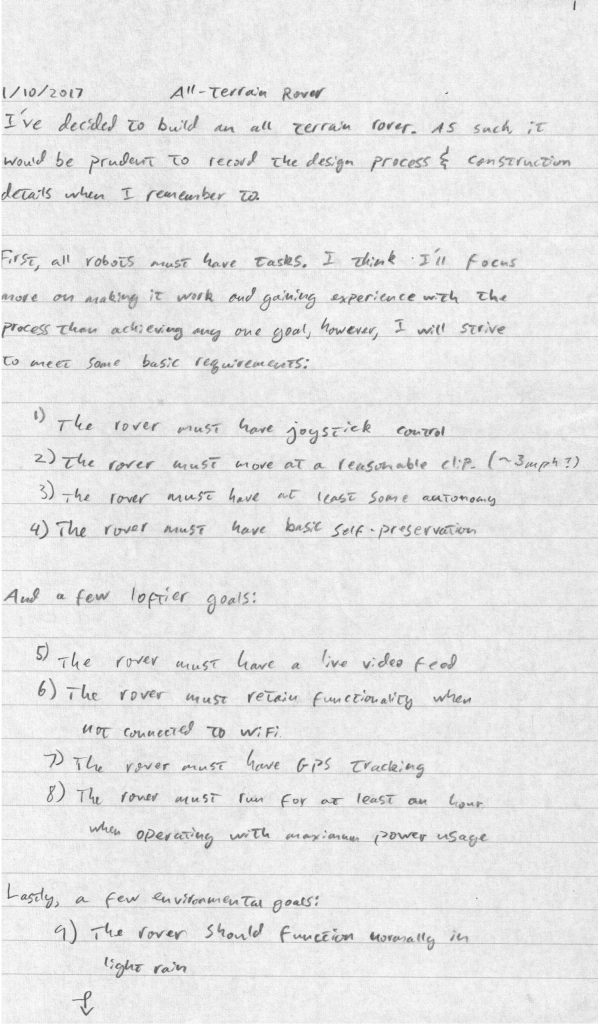 1
1/10/2017 All-Terrain Rover
I've decided to build an all terrain rover. As such it
would be prudent to record the design process & construction
details when I remember to.
First, all robots must have tasks. I think I'll focus
more on making it work and gaining experience with the
process than achieving any one goal, however, I will strive
to meet some basic requirements:
1) The rover must have joystick control
2) The rover must move at a reasonable clip. (~3mph?)
3) The rover must have at least some autonomy
4) The rover must have basic self-preservation
And a few loftier goals:
5) The rover must have a live video feed
6) The rover must retain functionality when
not connected to WiFi.
7) The rover must have GPS tracking
8) The rover must run for at least an hour
when operating with maximum power usage
Lastly, a few environmental goals:
9) The rover should function normally in
light rain